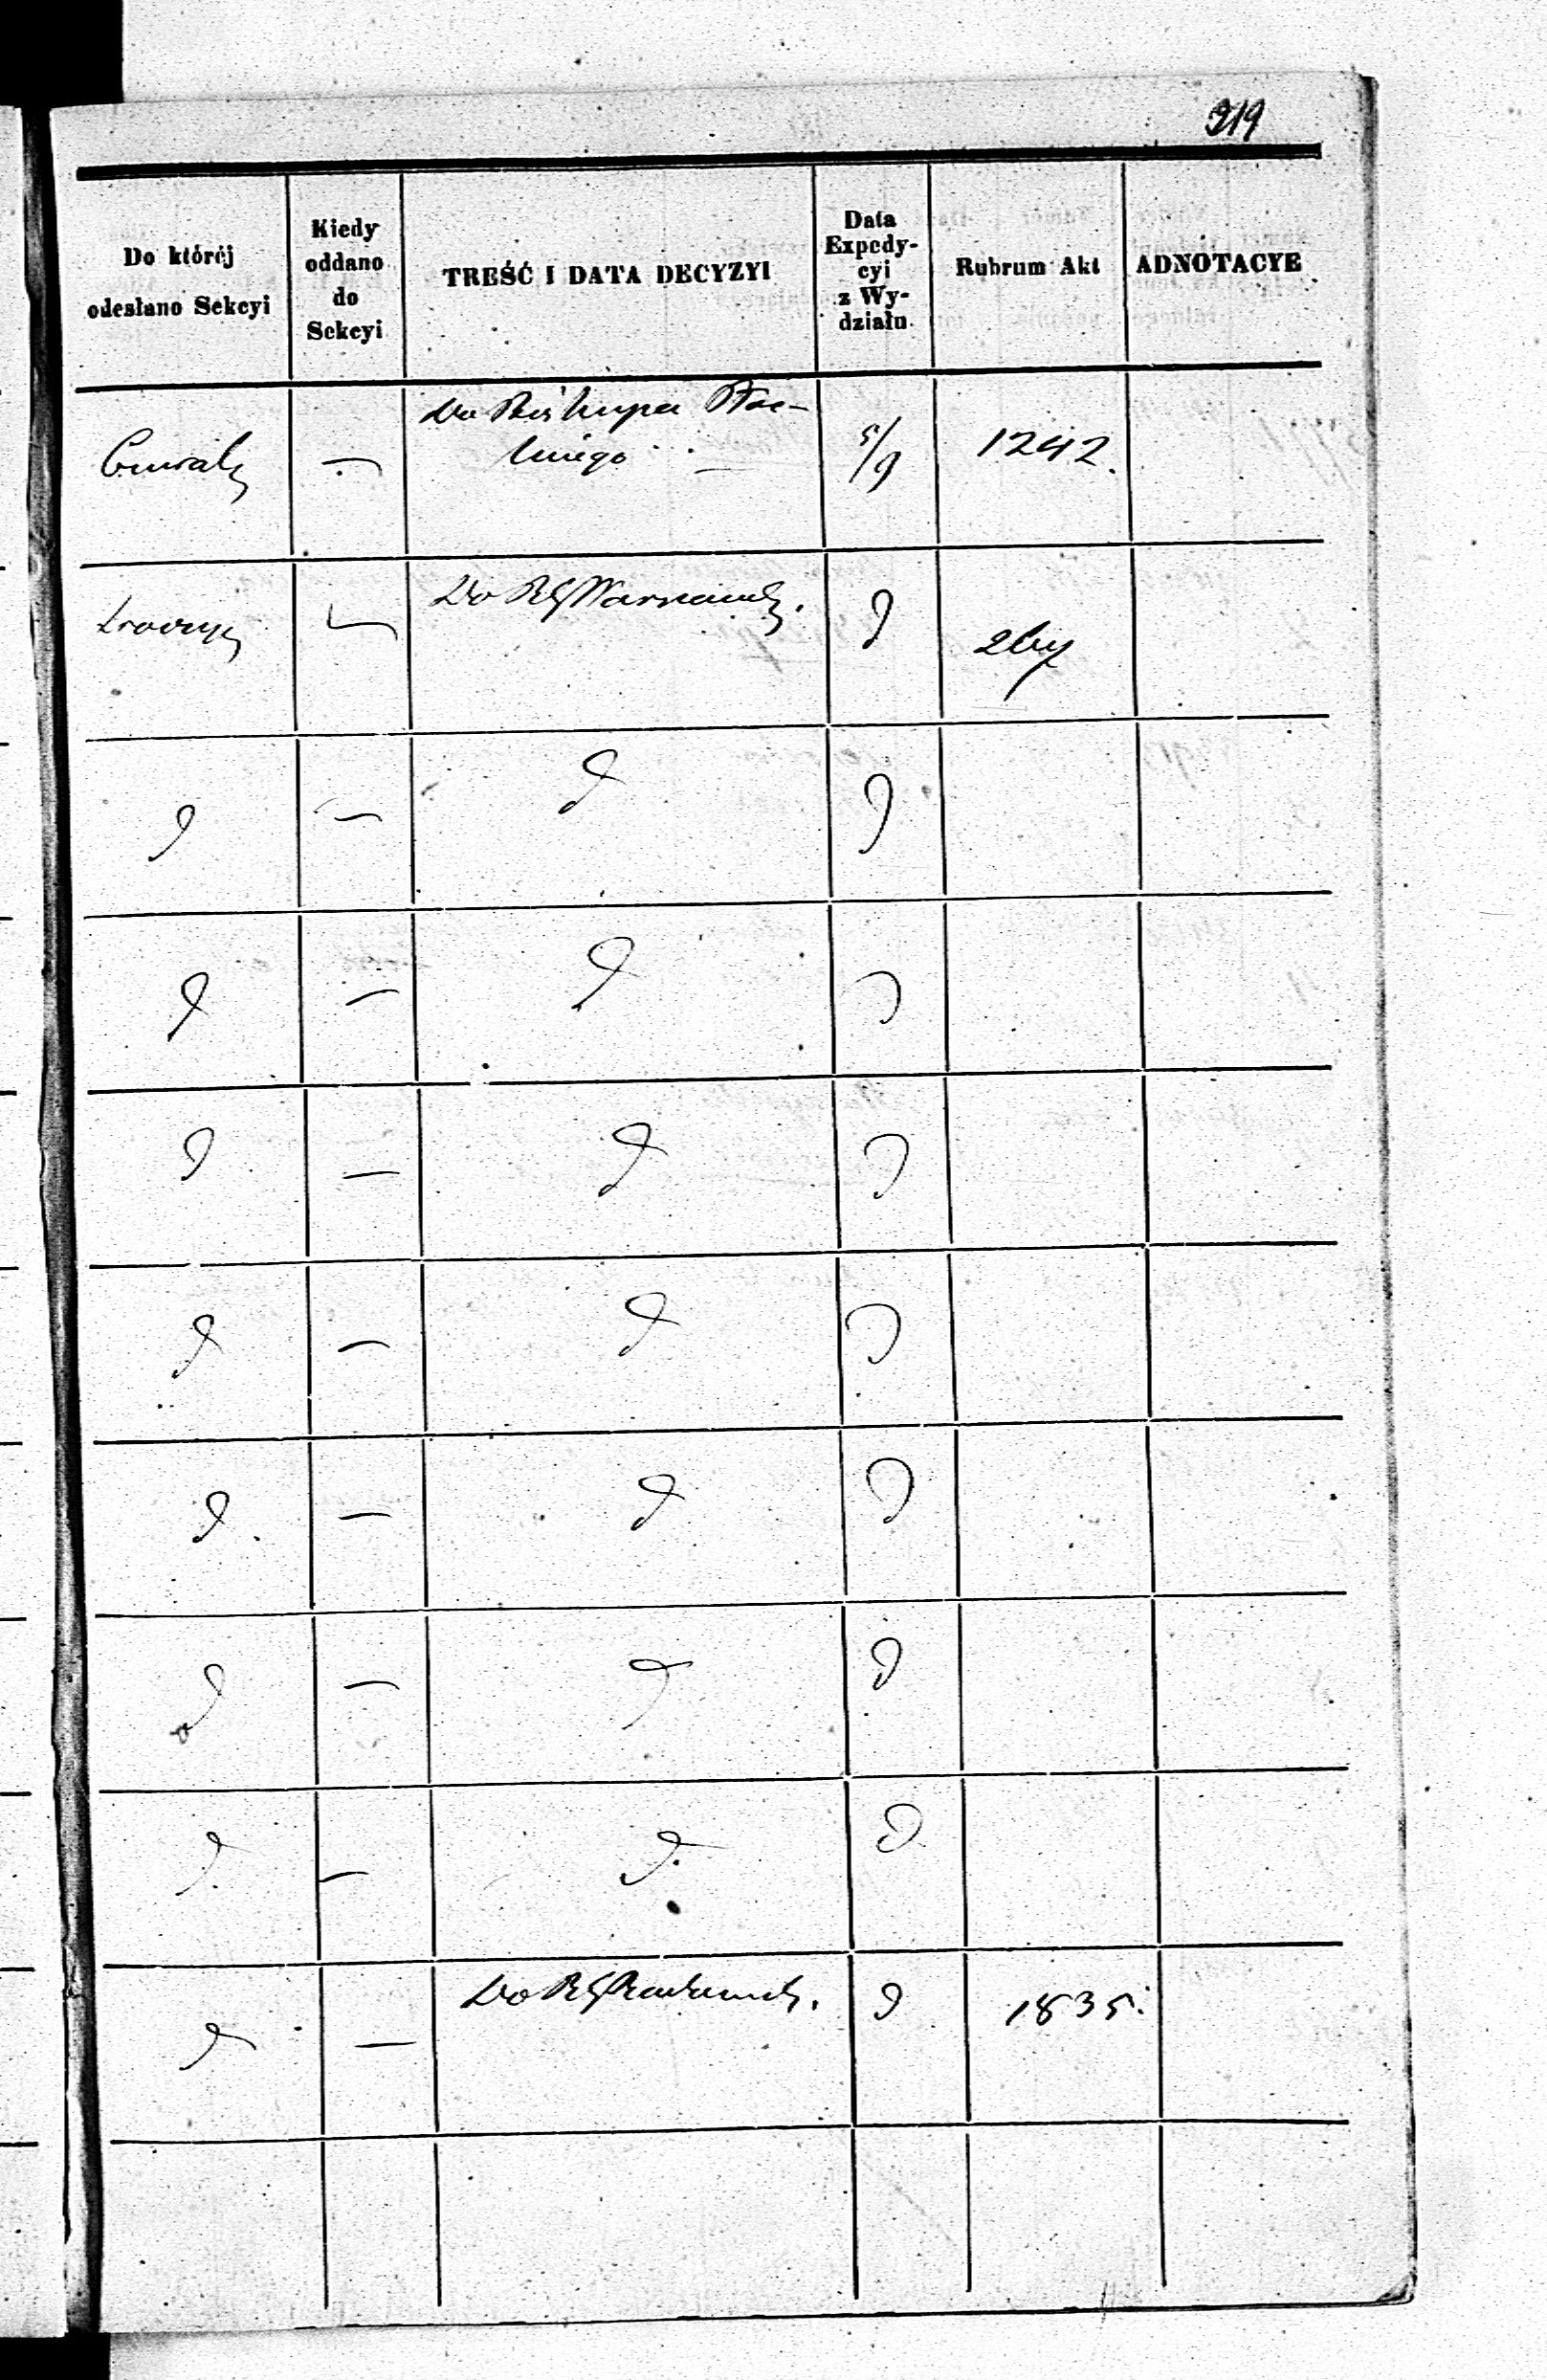 319
Do któréj
odesłano Sekcyi
Kiedy
oddano
do
Sekcyi
TREŚĆ I DATA DECYZYI
Data
Expedy-
cyi
z Wy-
działu
Rubrum Akt
ADNOTACYE
—
Do Biskupa
5/9
1242.
—
Do RG Warszawsk.
d
d
—
d
d
d
—
d
d
d
—
d
d
d
—
d
d
d
—
d
d
d
—
d
d
d
—
d
d
d
—
Do RG Radomsk.
d
1835.